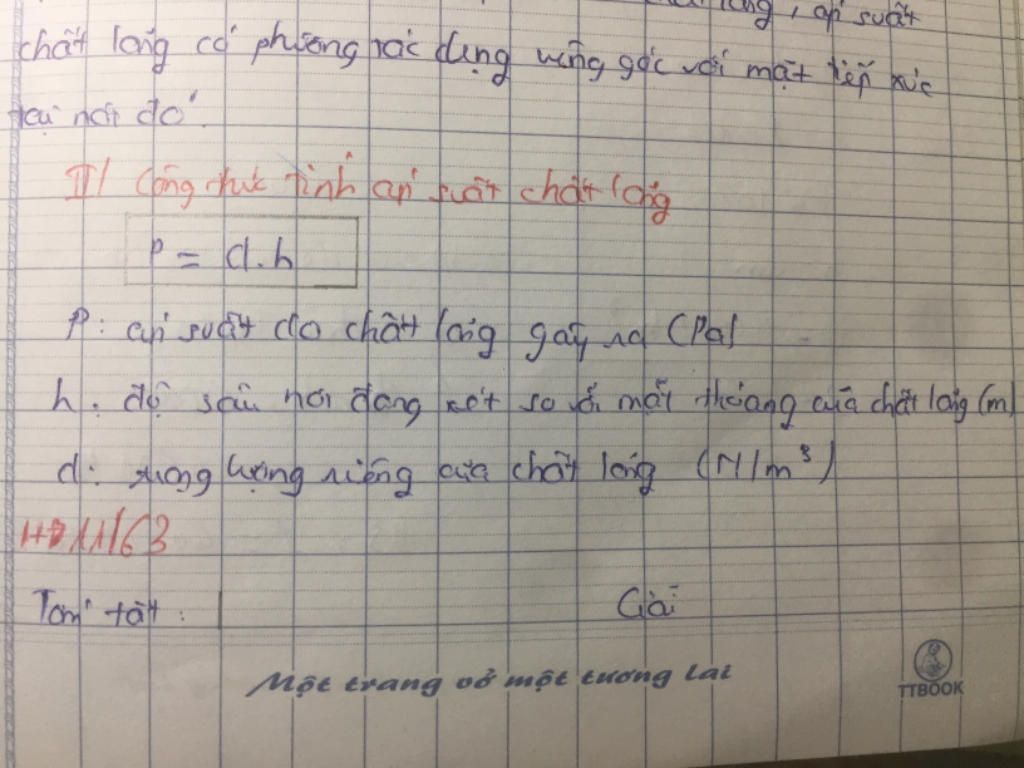 lỏng, áp suất
chất lỏng có phương tác dụng vuông góc với mặt tiếp xúc
tại nơi đó.
II/ Công thức tính áp suất chất lỏng
P = d.h
P: áp suất do chất lỏng gây ra (Pa)
h: độ sâu nơi đang xét so với mặt thoáng của chất lỏng (m)
d: trọng lượng riêng của chất lỏng (N/m³)
HĐ 11/63
Tóm tắt: Giải
Một trang vở một tương lai
TTBOOK